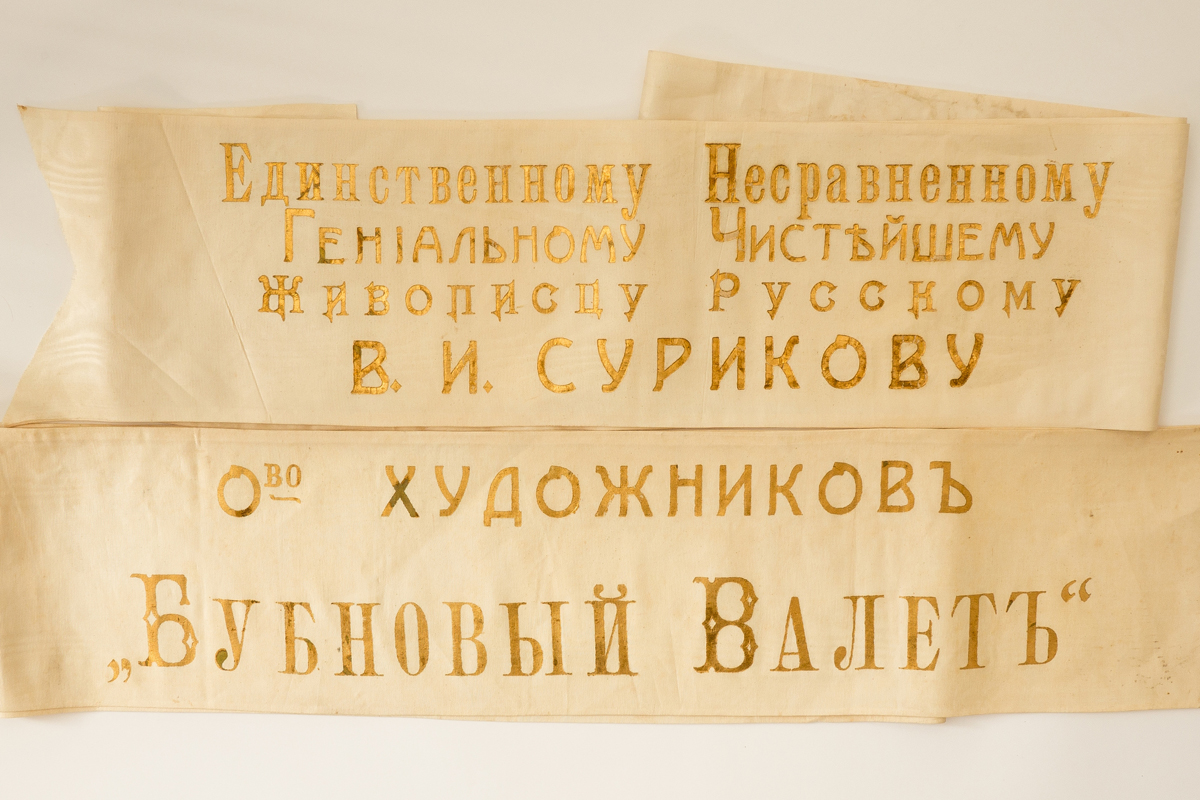 Единственному Несравненному
Геніальному Чистѣйшему
Живописцу Русскому
В. И. СУРИКОВУ
О-во ХУДОЖНИКОВЪ
„Бубновый Валетъ“